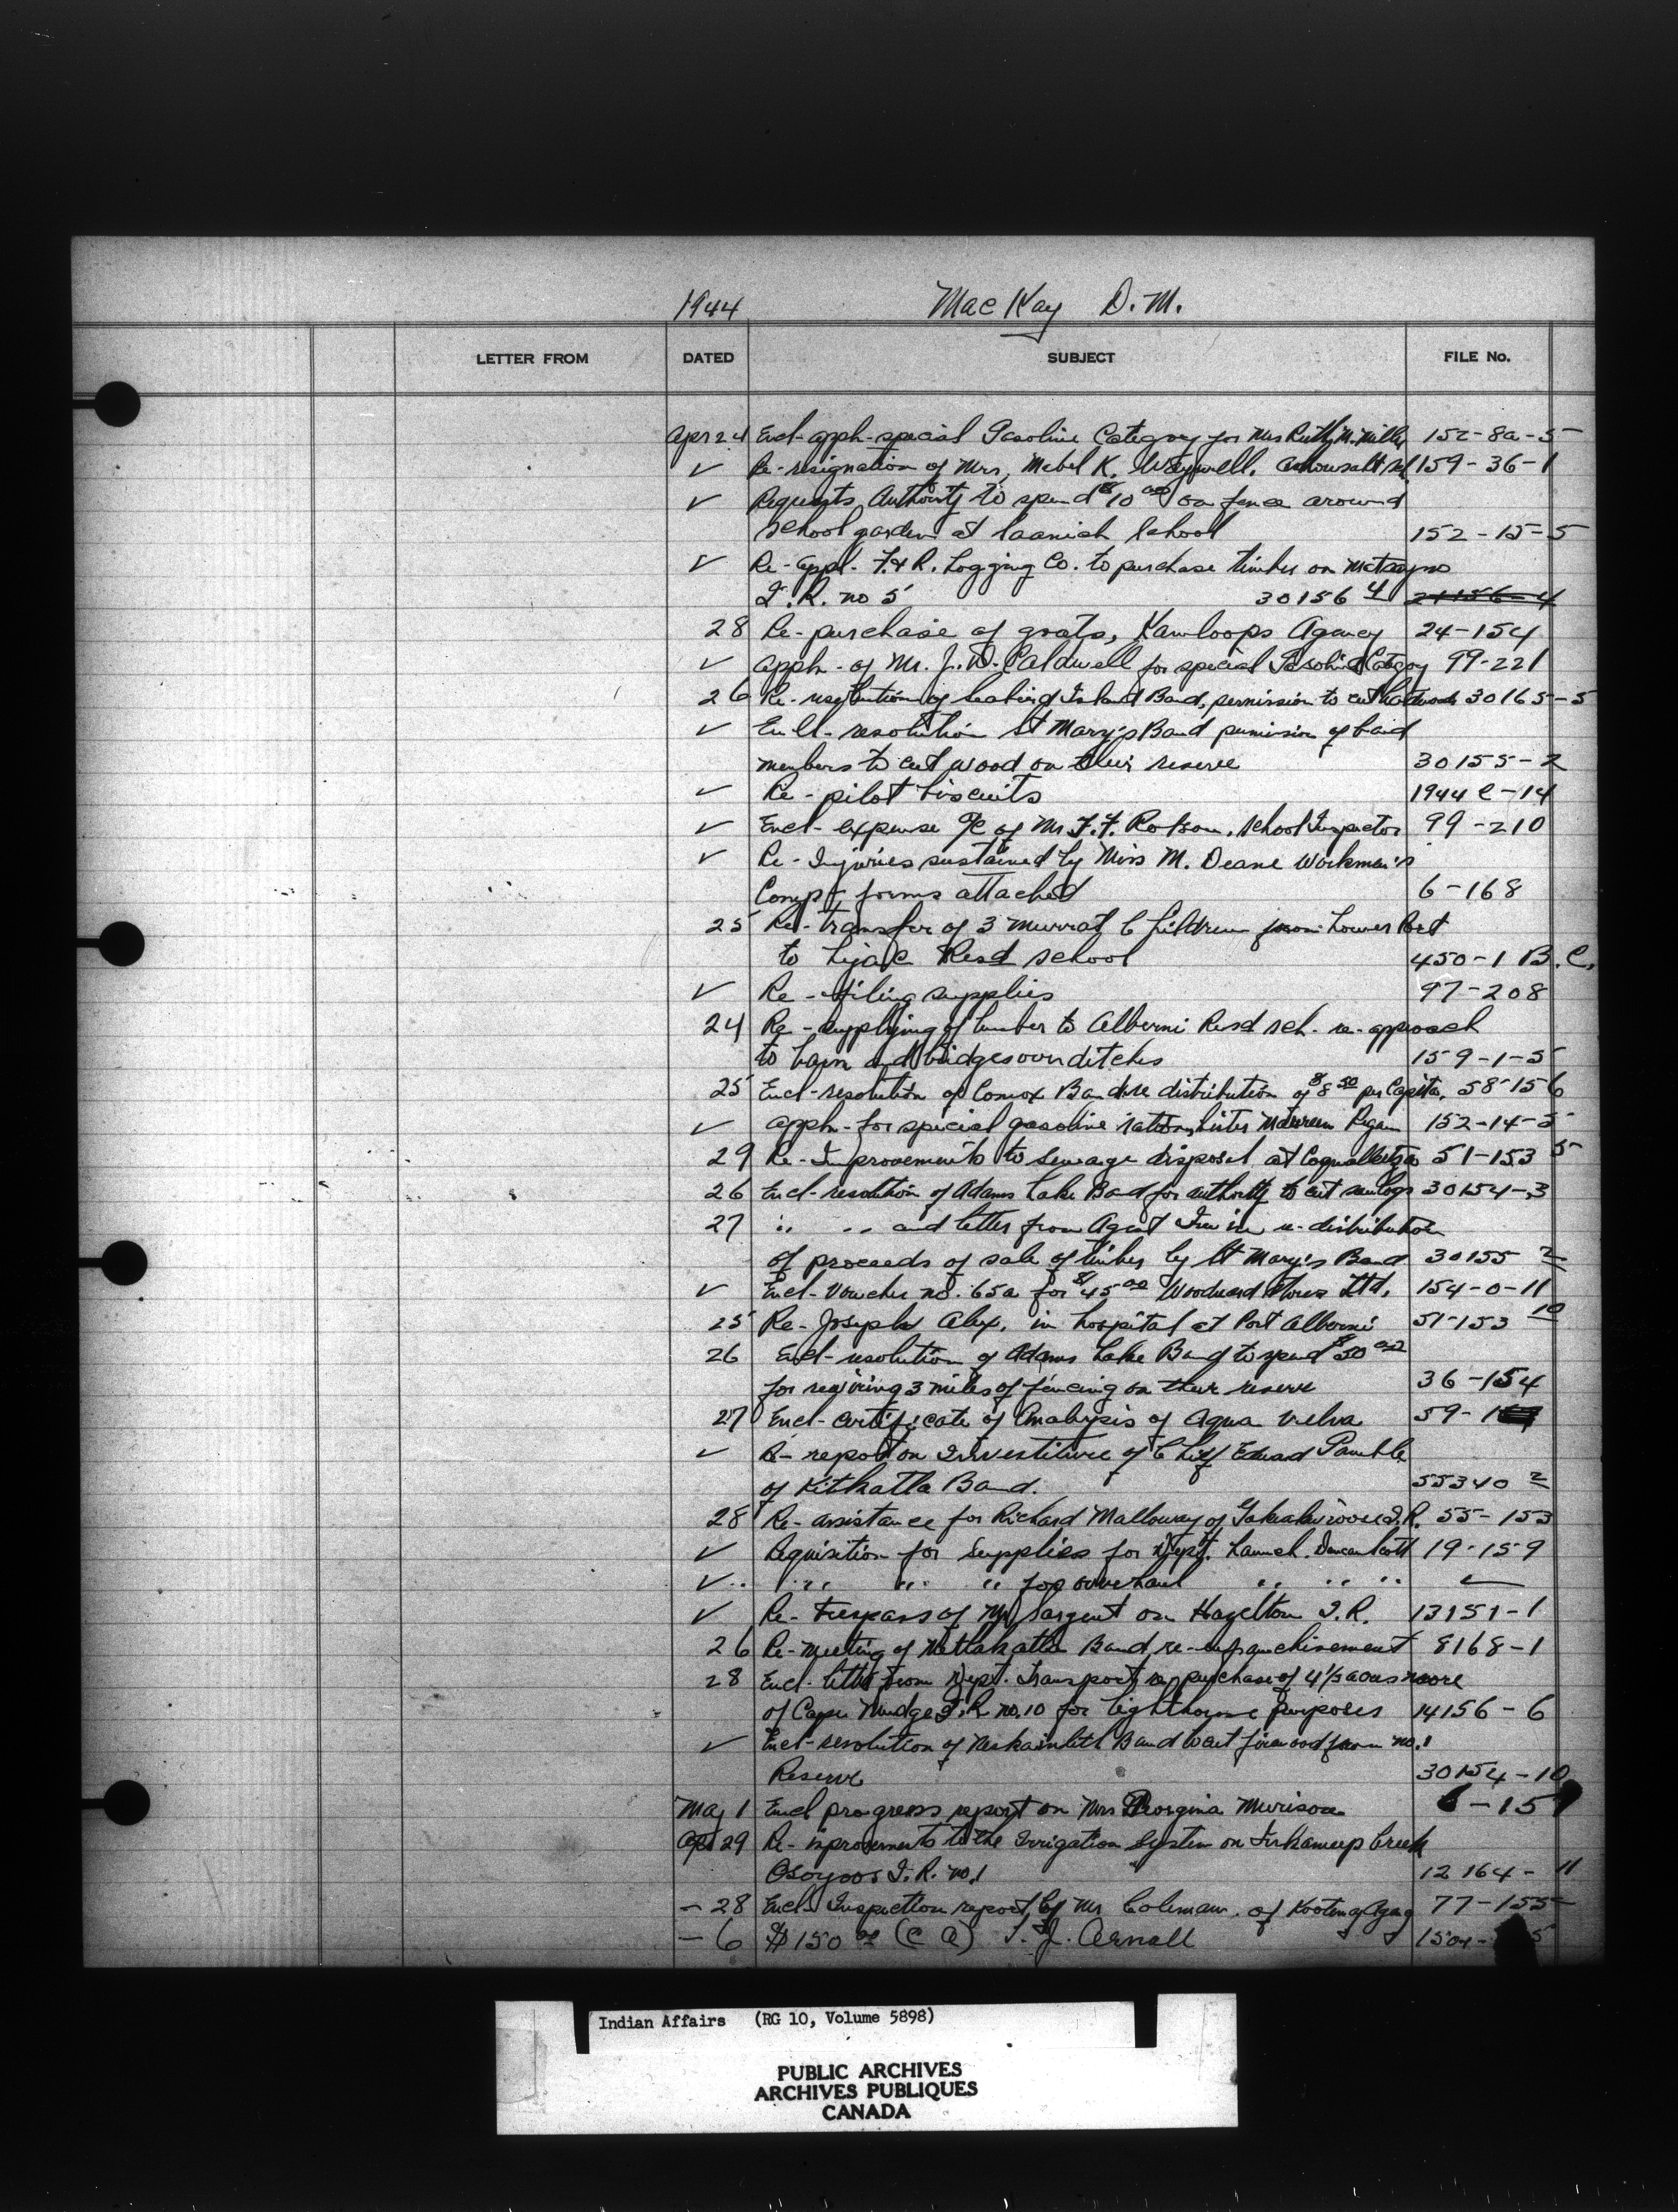 1944 MacKay D.M.
LETTER FROM DATED SUBJECT FILE No.
Apr 24 Encl-appln-special Gasoline Category for Mrs Ruth M. Miller 152-8a-5
✓ Re-resignation of Mrs. Mabel K. 159-36-1
✓ Requests Authority to spend $10 00 on fence around
school garden at Saanich School 152-15-5
✓ Re-appl. F. & R. Logging Co. to purchase timber on
I.R. no 5 30156 4 21156-4
28 Re-purchase of goats, Kamloops Agency 24-154
✓ appln-of Mr. J.D. Caldwell for special Gasoline Category 99-221
26 Re-resolution of Island Band, permission to cut 30165-5
✓ Encl-resolution St Mary's Band permission of band
members to cut wood on their reserve 30155-2
✓ Re-pilot biscuits 1944 C-14
✓ Encl-expense a/c of Mr. F.F. Robson, School Inspector 99-210
✓ Re-Injuries sustained by Miss M. Deane Workmen's
Comp. forms attached 6-168
25 Re-transfer of 3 Murray Children from Lower Post
to Lejac Resd School 450-1 B.C.
✓ Re-filing supplies 97-208
24 Re-supplying of lumber to Alberni Resd sch. re-approach
to barn and bridges over ditches 159-1-5
25 Encl-resolution of Comox Band re distribution of $8 50 per Capita. 58-156
✓ appln-for special gasoline ration, Sister Maureen 152-14-5
29 Re-Improvements to sewage disposal at Coqualeetza 51-153 5
26 Encl-resolution of Adams Lake Band for authority to cut sawlogs 30154-3
27 " " and letter from Agent Irwin re-distribution
of proceeds of sale of timber by St Mary's Band 30155 2
✓ Encl-Voucher no. 65a for $45 00 Woodward Stores Ltd. 154-0-11
25 Re-Joseph Alex, in hospital at Port Alberni 51-153 10
26 Encl-resolution of Adams Lake Band to spend $50 00
for rewiring 3 miles of fencing on their reserve 36-154
27 Encl-certificate of Analysis of Aqua Velva 59-1
✓ Re-report on Investiture of Chief Edward Gamble
of Kitkatla Band. 55340 2
28 Re-assistance for Richard Malloway of I.R. 55-153
✓ Requisition for Supplies for Dept. Launch. Duncan Scott 19-159
✓ " " " " for overhaul " " " ✓
✓ Re-Trespass of Mr Sargent on Hazelton I.R. 13151-1
26 Re-meeting of Metlakatla Band re-enfranchisement 8168-1
28 Encl-letter from Dept. Transport re purchase of 4 1/2 acres more
of Cape Mudge I.R. no. 10 for lighthouse purposes 14156-6
✓ Encl-resolution of Neskainlith Band to cut firewood from no. 1
Reserve 30154-10
May 1 Encl progress report on Mrs Georgina Murison 6-15
Apr 29 Re-improvements to the Irrigation System on Inkameep Creek
Osoyoos I.R. no. 1 12164-11
- 28 Encl-Inspection report by Mr Coleman. of Kootenay Agcy 77-155
- 6 $150 00 (C A) T.J. Arnall
Indian Affairs (RG 10, Volume 5898)
PUBLIC ARCHIVES
ARCHIVES PUBLIQUES
CANADA